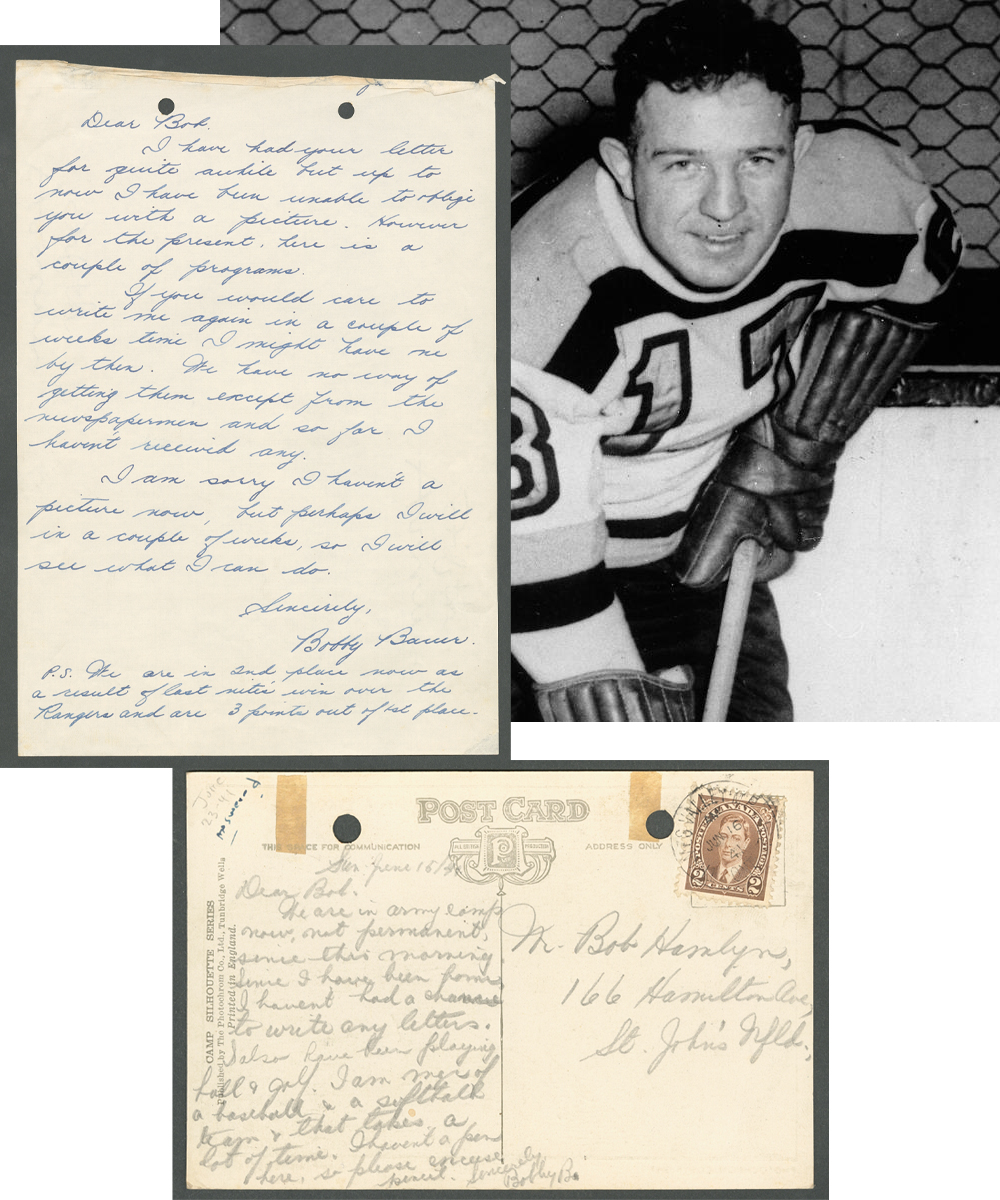 Dear Bob.
I have had your letter
for quite awhile but up to
now I have been unable to oblige
you with a picture. However
for the present, here is a
couple of programs.
If you would care to
write me again in a couple of
weeks time I might have one
by then. We have no way of
getting them except from the
newspapermen and so far I
haven't received any.
I am sorry I haven't a
picture now, but perhaps I will
in a couple of weeks, so I will
see what I can do.
Sincerely,
Bobby Bauer.
P.S. We are in 2nd place now as
a result of last nite's win over the
Rangers and are 3 points out of 1st place.
17
8
June
23-41
answered
POST CARD
THIS SPACE FOR COMMUNICATION
ADDRESS ONLY
CAMP SILHOUETTE SERIES
Published by The Photochrom Co., Ltd., Tunbridge Wells
Printed in England.
Sun. June 15/
Dear Bob.
We are in army camp
now, not permanent,
since this morning.
Since I have been home
I havent had a chance
to write any letters.
I also have been playing
ball & golf. I am mgr of
a baseball & a softball
team & that takes a
lot of time. I havent a pen
here, so please excuse
pencil. Sincerely
Bobby B
CANADA
POSTES POSTAGE
2 CENTS 2
JUN 16
Mr. Bob Hamlyn,
166 Hamilton Ave,
St. John's Nfld.,